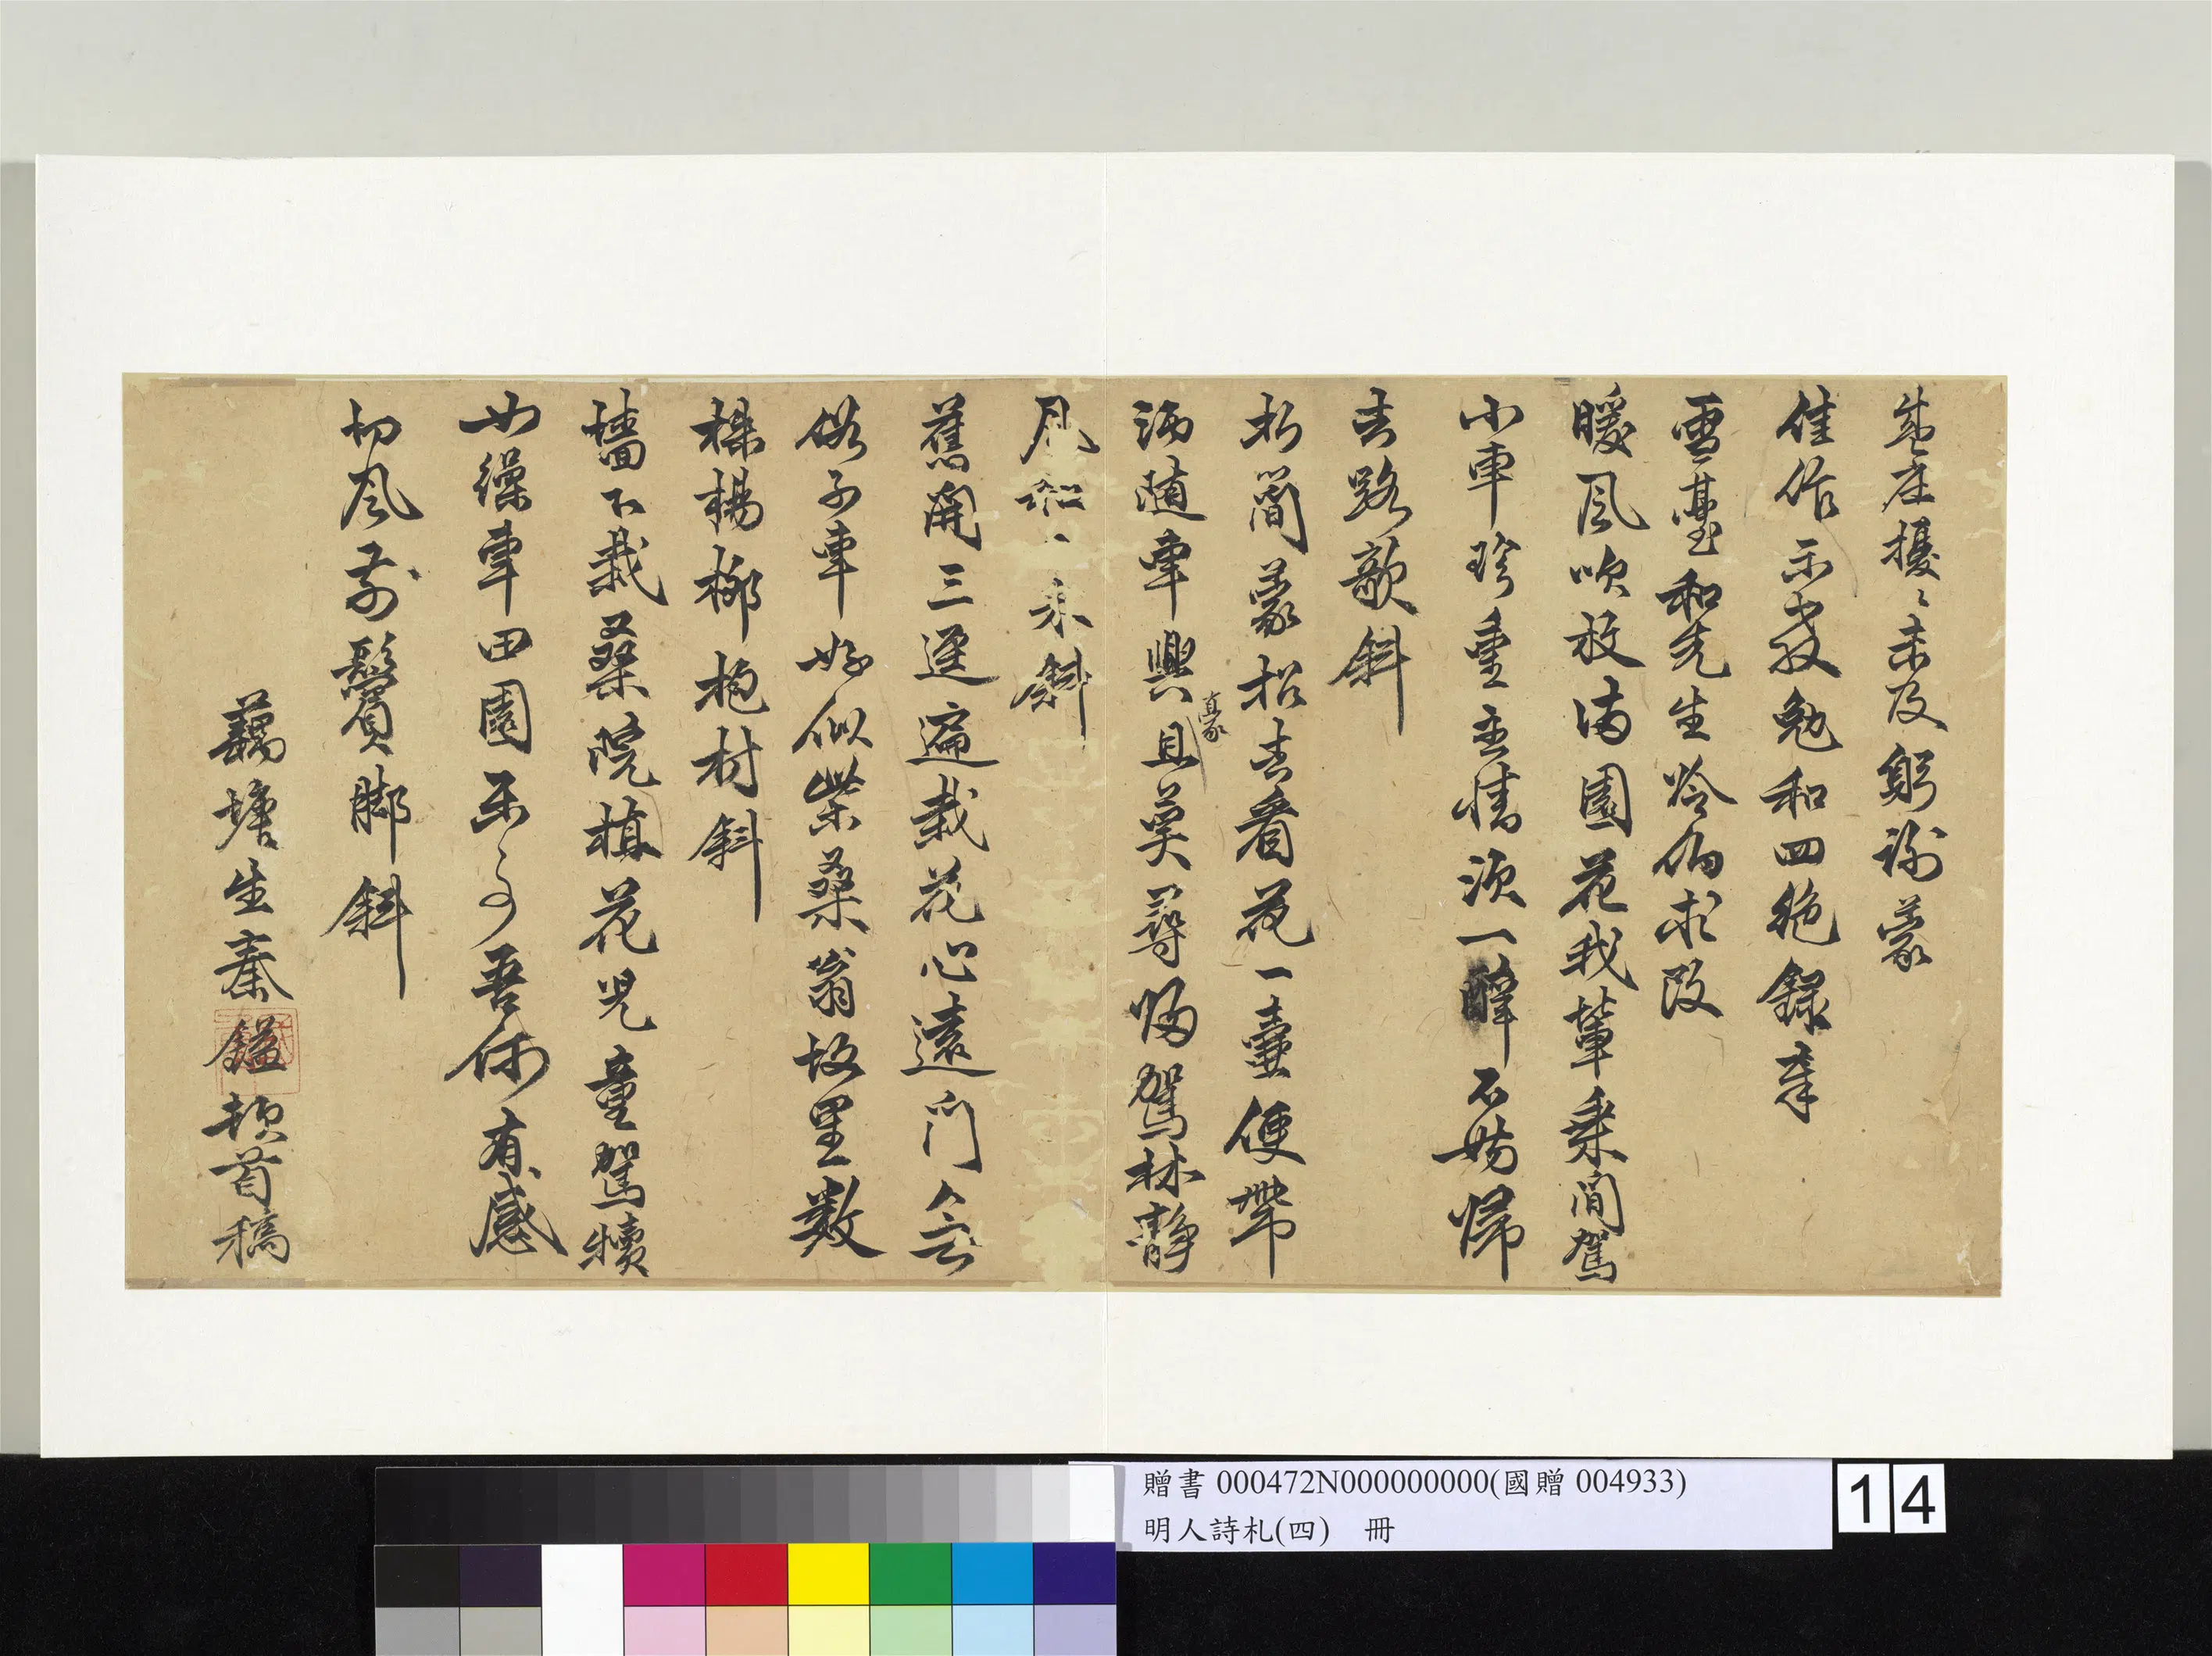 盛庄擾〻未及躬謝蒙
佳作示教勉和四絕錄奉
雪臺和先生吟伯求改
暖風吹放滿園花我輩乘閒駕
小車珍重主情須一醉不妨歸
去路欹斜
折簡蒙招去看花一壺便帶
酒隨車興且莫尋歸駕林靜
豪
風 未斜
舊開三逕遍栽花心遠門無
俗子車好似柴桑翁故里數
株楊柳抱村斜
墻下栽桑院植花兒童駕犢
女繰車田園樂事吾何有感
切風前鬢脚斜
藕塘生秦鎰頓首稿
贈書 000472N000000000(國贈 004933)
明人詩札(四) 冊
14